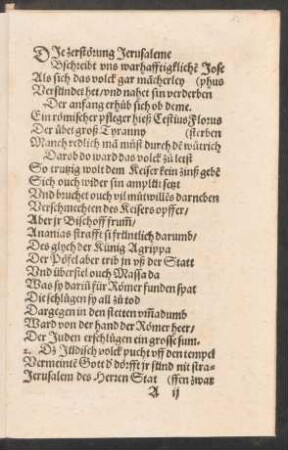 DIe zerstörung Jerusaleme
Bschreibt vns warhafftigklichē Jose
Als sich das volck gar mācherley (phus
Versündet het/vnd nahet sin verderben
Der anfang erhůb sich ob deme.
Ein römischer pfleger hieß Cestius Florus
Der übet groß Tyranny (sterben
Manch redlich mā můst durch dē wütrich
Darob do ward das volck zů leist
So trutzig wolt dem Keiser kein zinß gebē
Sich ouch wider sin amplüt setzt
Vnd bruchet ouch vil můtwillēs darneben
Verschmechten des Keisers opffer/
Aber jr Bischoff frum̄/
Ananias strafft si früntlich darumb/
Des glych der Künig Agrippa
Der Pöfel aber trib jn vß der Statt
Vnd überfiel ouch Massada
Was sy dariū für Römer funden spat
Die schlůgen sy all zů tod
Dargegen in den stetten vm̄adumb
Ward von der hand der Römer heer/
Der Juden erschlůgen ein grosse sum.
2. Dz Jüdisch volck pucht vff den tempel
Vermeintē Gott ď dörfft jr sünd nit stra-
Jerusalem des Herren Stat (ffen zwar
A ij